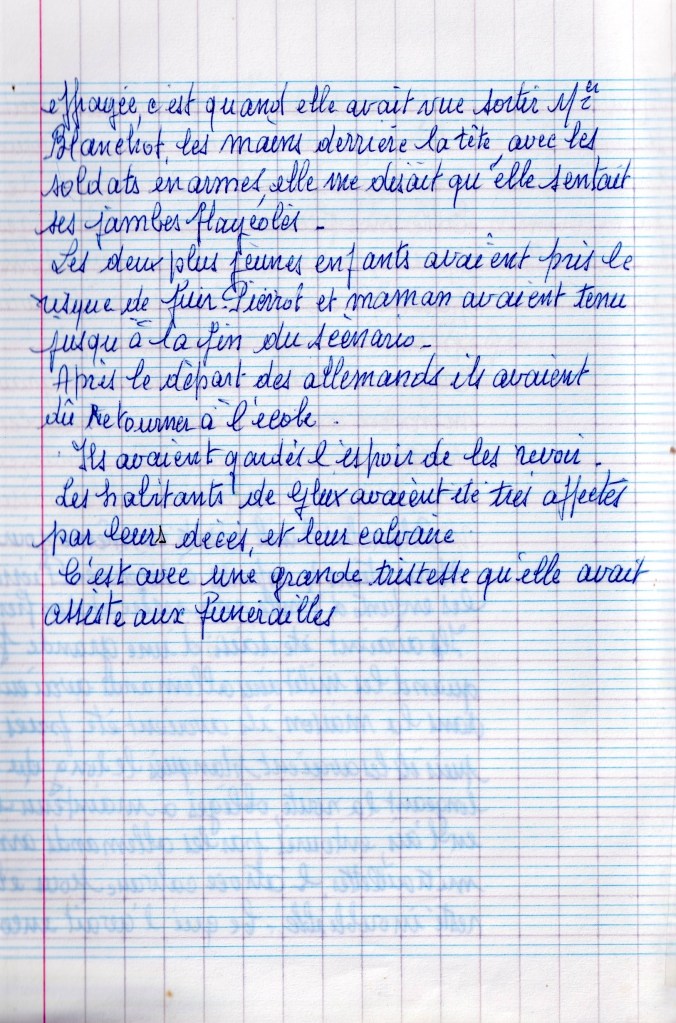 effrayée, c'est quand elle avait vue sortir Mr et
Blanchot, les mains derrière la tête, avec les
soldats en armes, elle me disait qu'elle sentait
ses jambes flageolés -
Les deux plus jeunes enfants avaient pris le
risque de fuir. Pierrot et maman avaient tenu
jusqu'à la fin du scénario -
Après le départ des allemands ils avaient
dû Retourner à l'école.
Ils avaient gardés l'espoir de les revoir.
Les habitants de Glux avaient été très affectés
par leurs décès, et leur calvaire
C'est avec une grande tristesse qu'elle avait
assisté aux funérailles